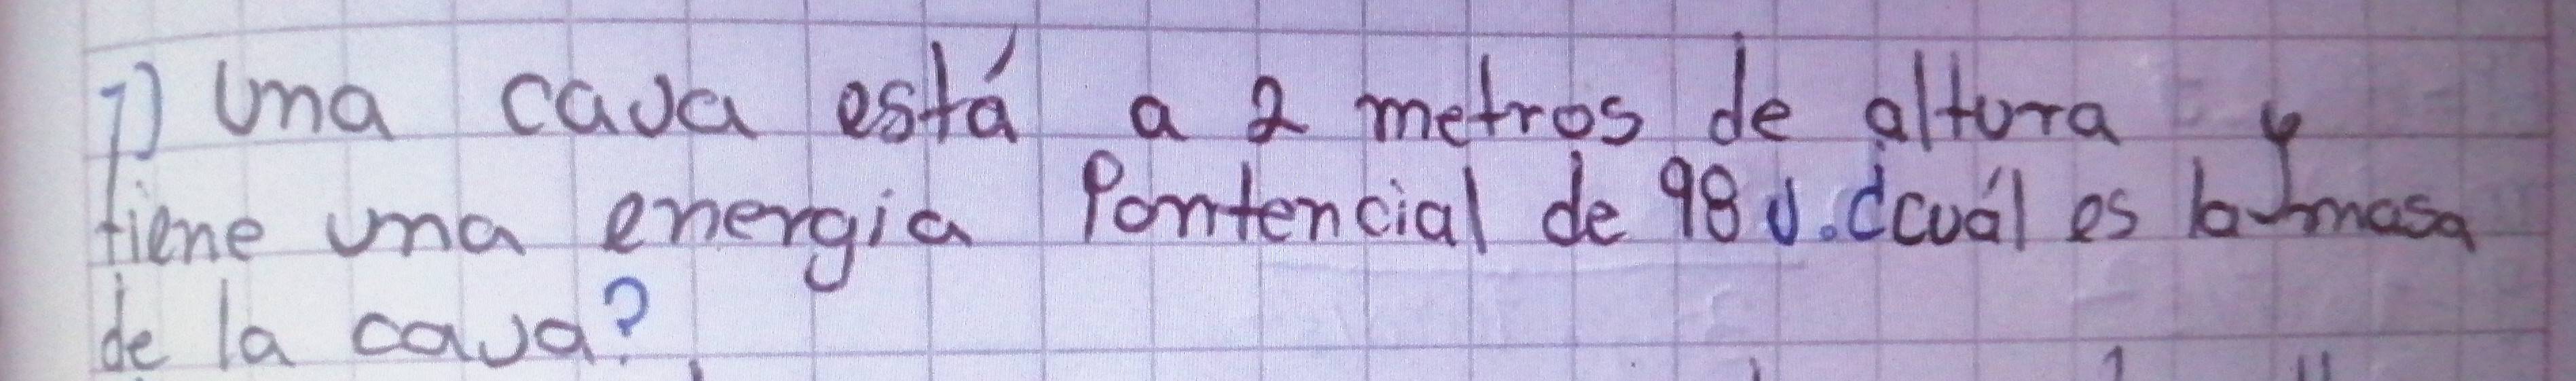 1) Una caja está a 2 metros de altura y
tiene una energia Pontencial de 98 J. ¿cuál es la masa
de la caja?